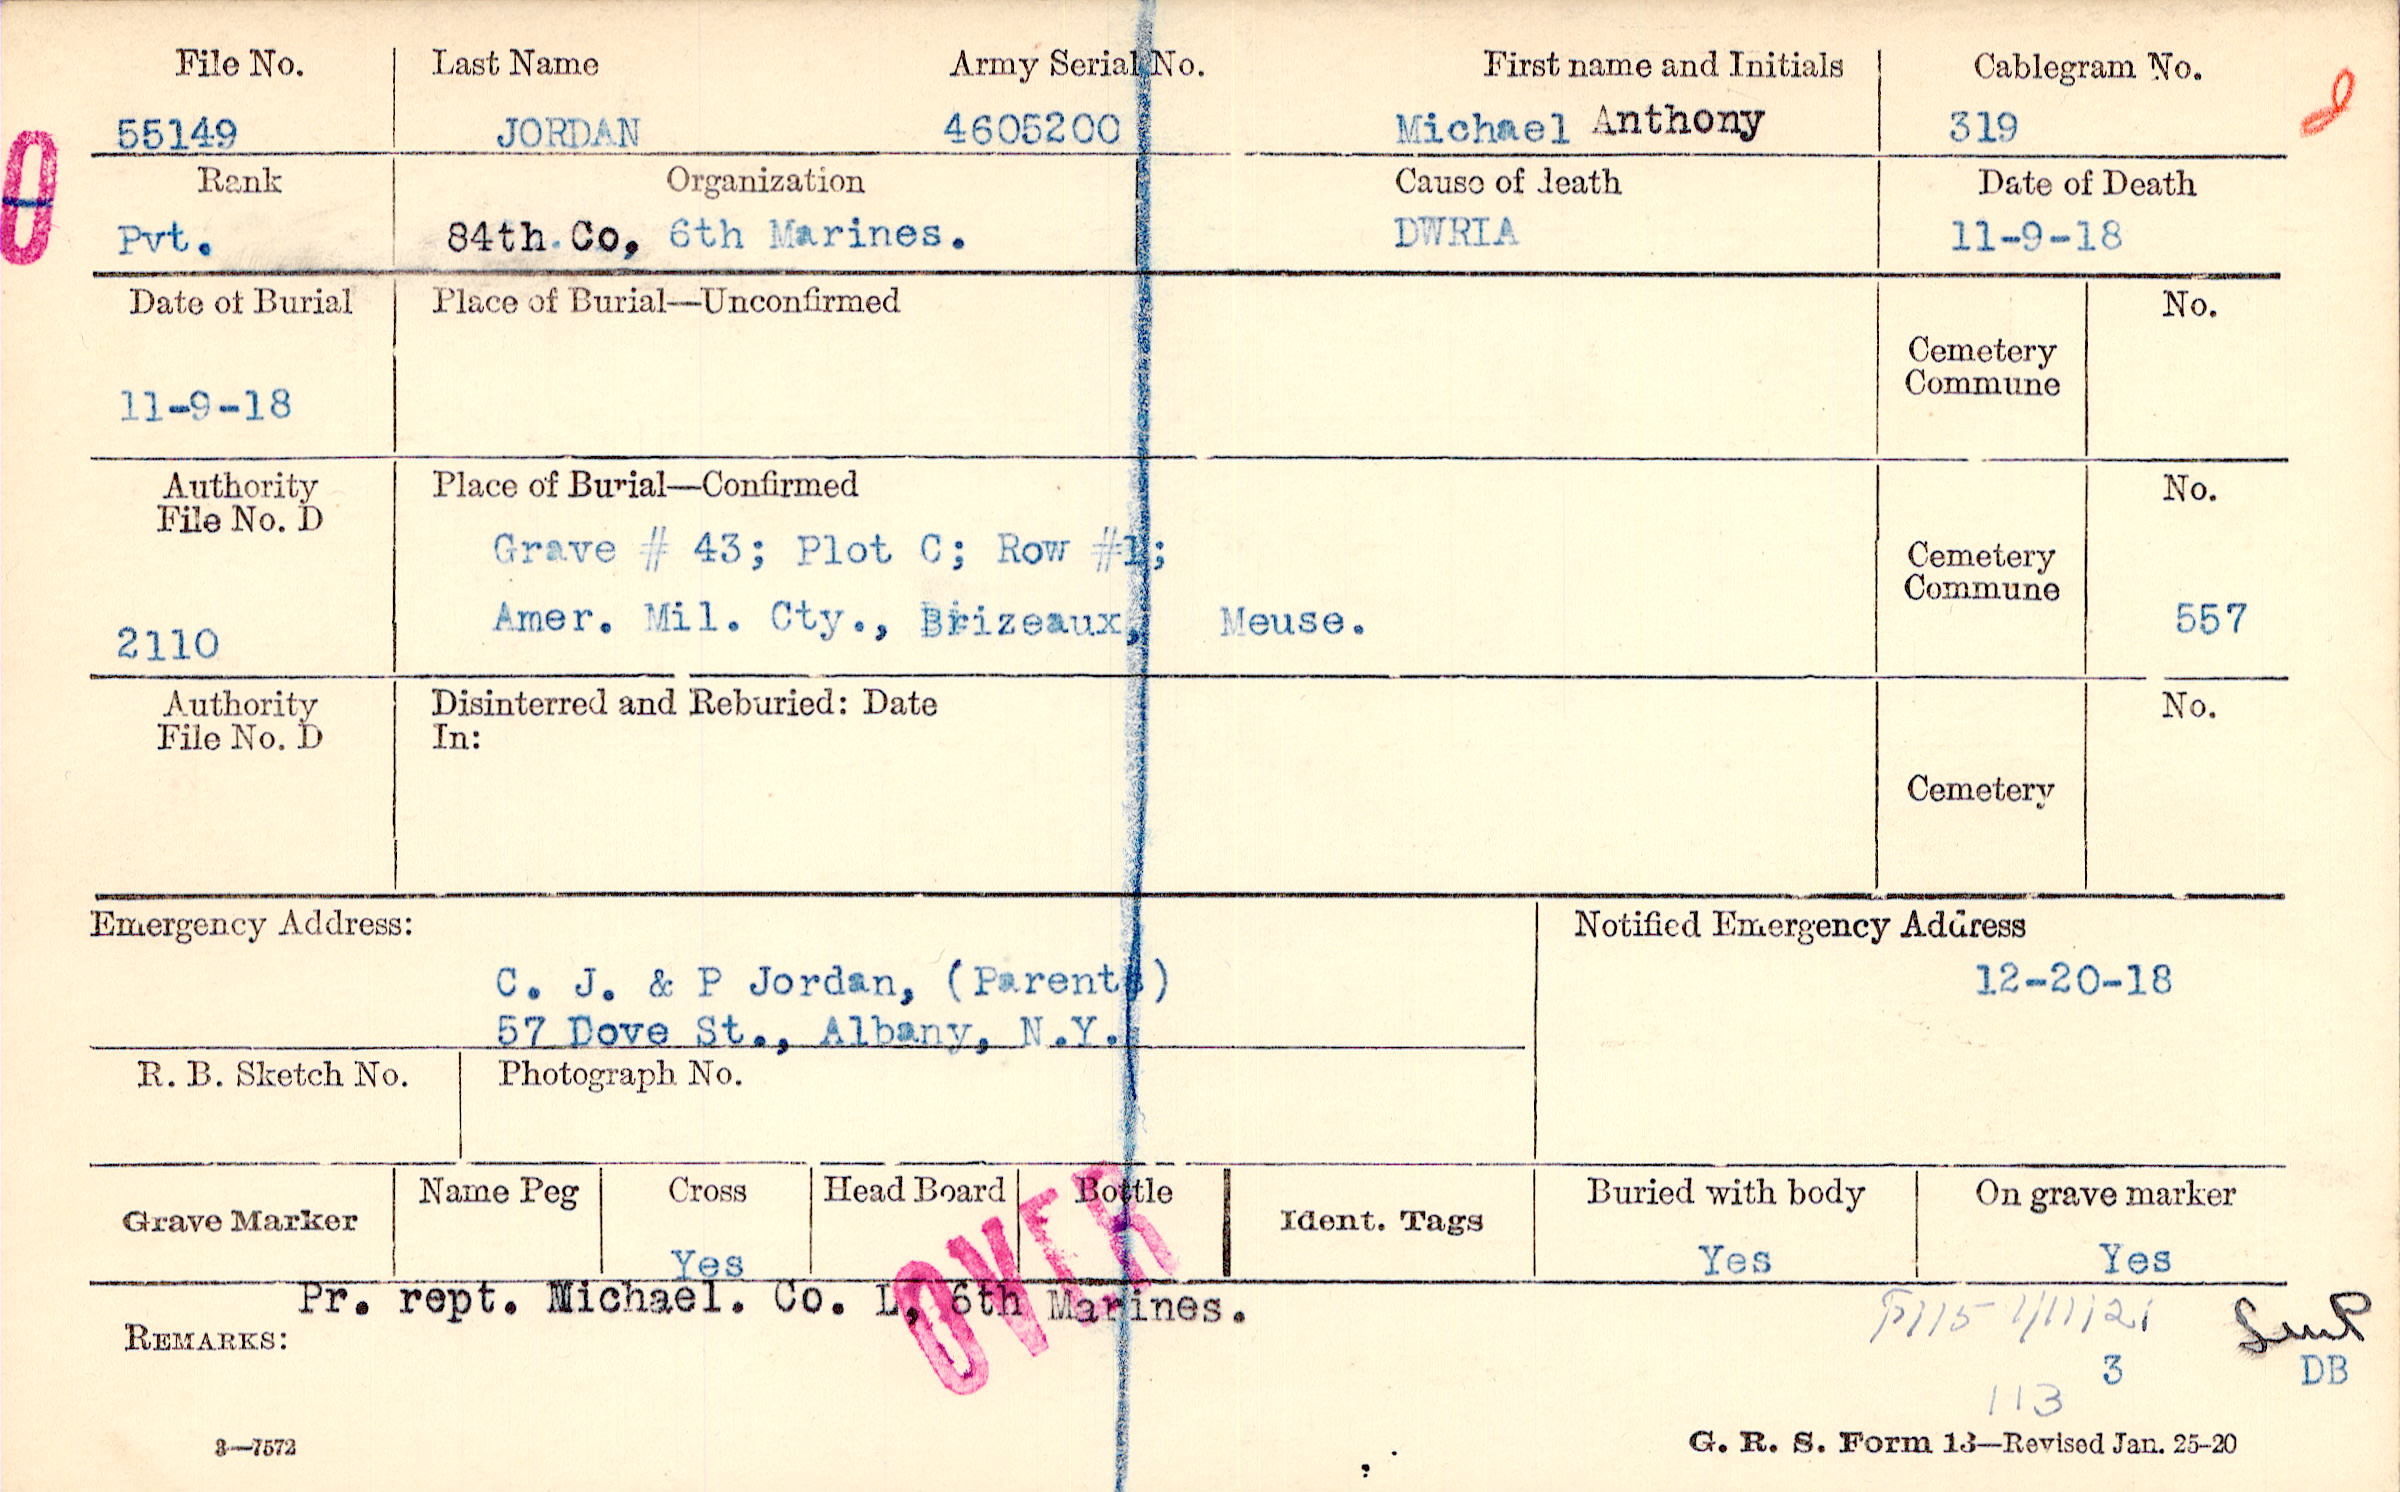 File No. Last Name Army Serial No. First name and Initials Cablegram No.
55149 JORDAN 4605200 Michael Anthony 319
Rank Organization Cause of death Date of Death
Pvt. 84th Co, 6th Marines. DWRIA 11-9-18
Date of Burial Place of Burial—Unconfirmed No.
Cemetery
Commune
11-9-18
Authority Place of Burial—Confirmed No.
File No. D
Grave # 43; Plot C; Row #1;
Cemetery
Commune
Amer. Mil. Cty., Brizeaux, Meuse. 557
2110
Authority Disinterred and Reburied: Date No.
File No. D In:
Cemetery
Emergency Address: Notified Emergency Address
C. J. & P Jordan, (Parents) 12-20-18
57 Dove St., Albany, N.Y.
R. B. Sketch No. Photograph No.
Grave Marker Name Peg Cross Head Board Bottle Ident. Tags Buried with body On grave marker
Yes Yes Yes
OVER
Pr. rept. Michael. Co. L, 6th Marines.
REMARKS:
3 DB
113
3—7572 G. R. S. Form 13—Revised Jan. 25-20